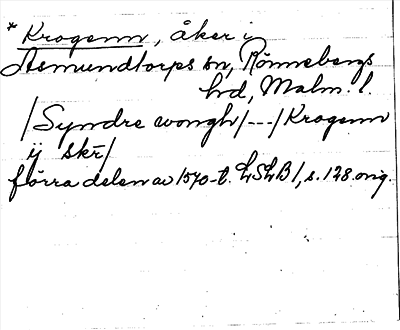 * Krogenn, åker i
Asmundtorps sn, Rönnebergs
hd, Malm. l.
/Syndre wongh/---/Krogenn
ij skr̄/
förra delen av 1570-t. LSLB/, s. 128. orig.